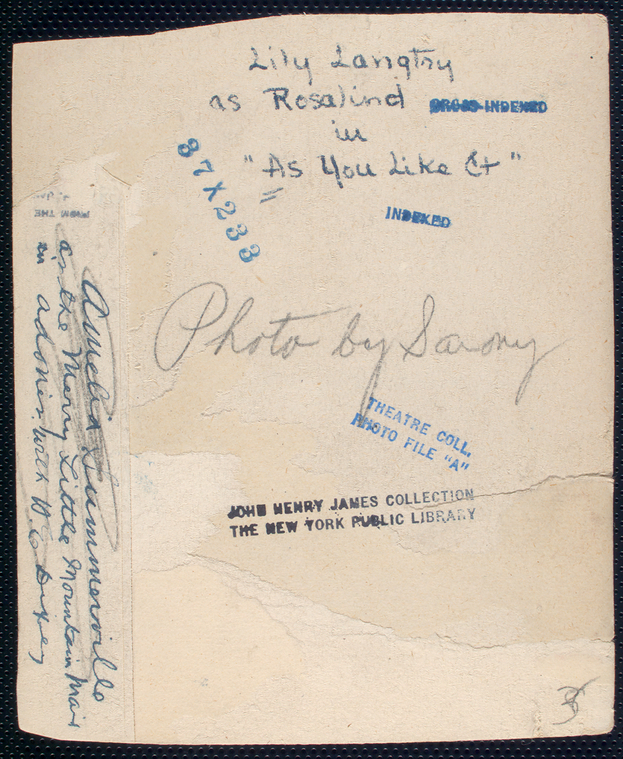 Lily Langtry
as Rosalind
CROSS-INDEXED
in
"As You Like It"
INDEXED
87X233
Photo by Sarony
THEATRE COLL.
PHOTO FILE "A"
JOHN HENRY JAMES COLLECTION
THE NEW YORK PUBLIC LIBRARY
FROM THE
Amelia Summerville
as the Merry Little Mountain Maid
in Adonis with H. E. Dixey